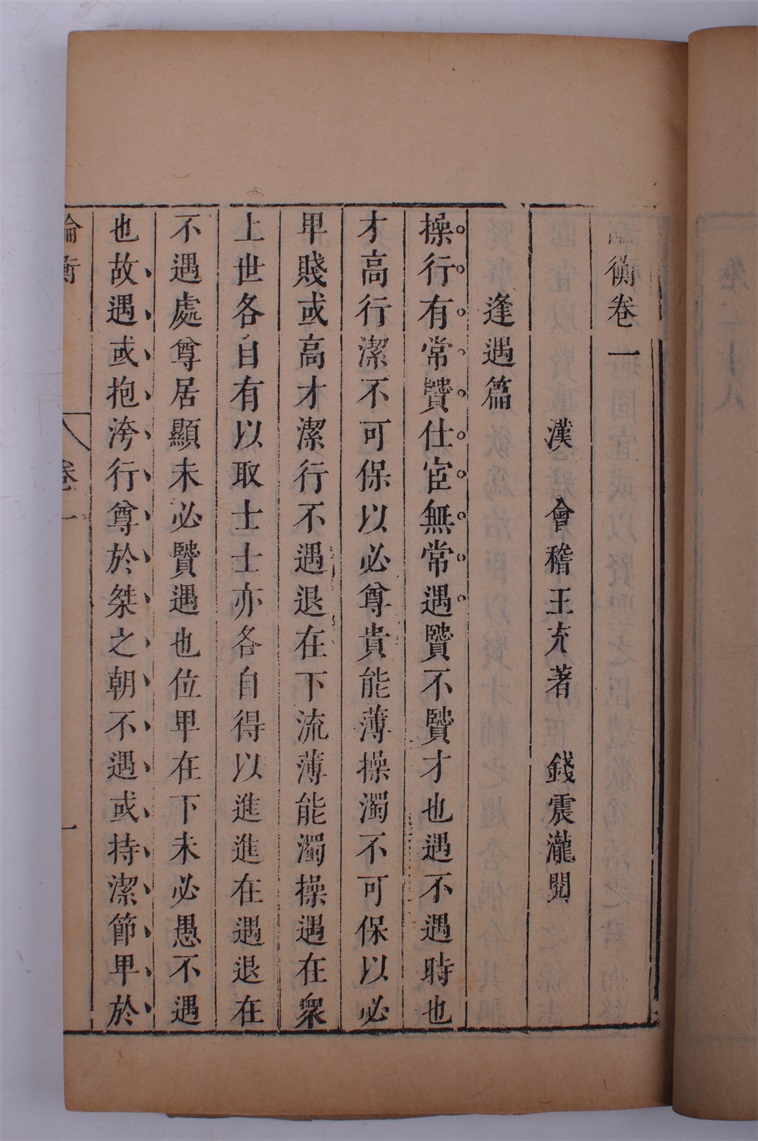 論衡卷一
漢 會稽王充著 錢震瀧閱
逢遇篇
操行有常贒仕宦無常遇贒不贒才也遇不遇時也
才高行潔不可保以必尊貴能薄操濁不可保以必
卑賤或高才潔行不遇退在下流薄能濁操遇在衆
上世各自有以取士士亦各自得以進進在遇退在
不遇處尊居顯未必贒遇也位卑在下未必愚不遇
也故遇或抱洿行尊於桀之朝不遇或持潔節卑於
論衡 卷一 一